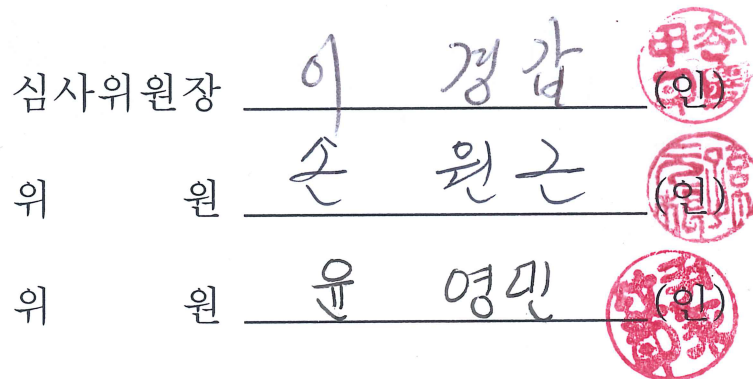 심사위원장 이 경갑 (인)
위 원 손 원근 (인)
위 원 윤 영민 (인)